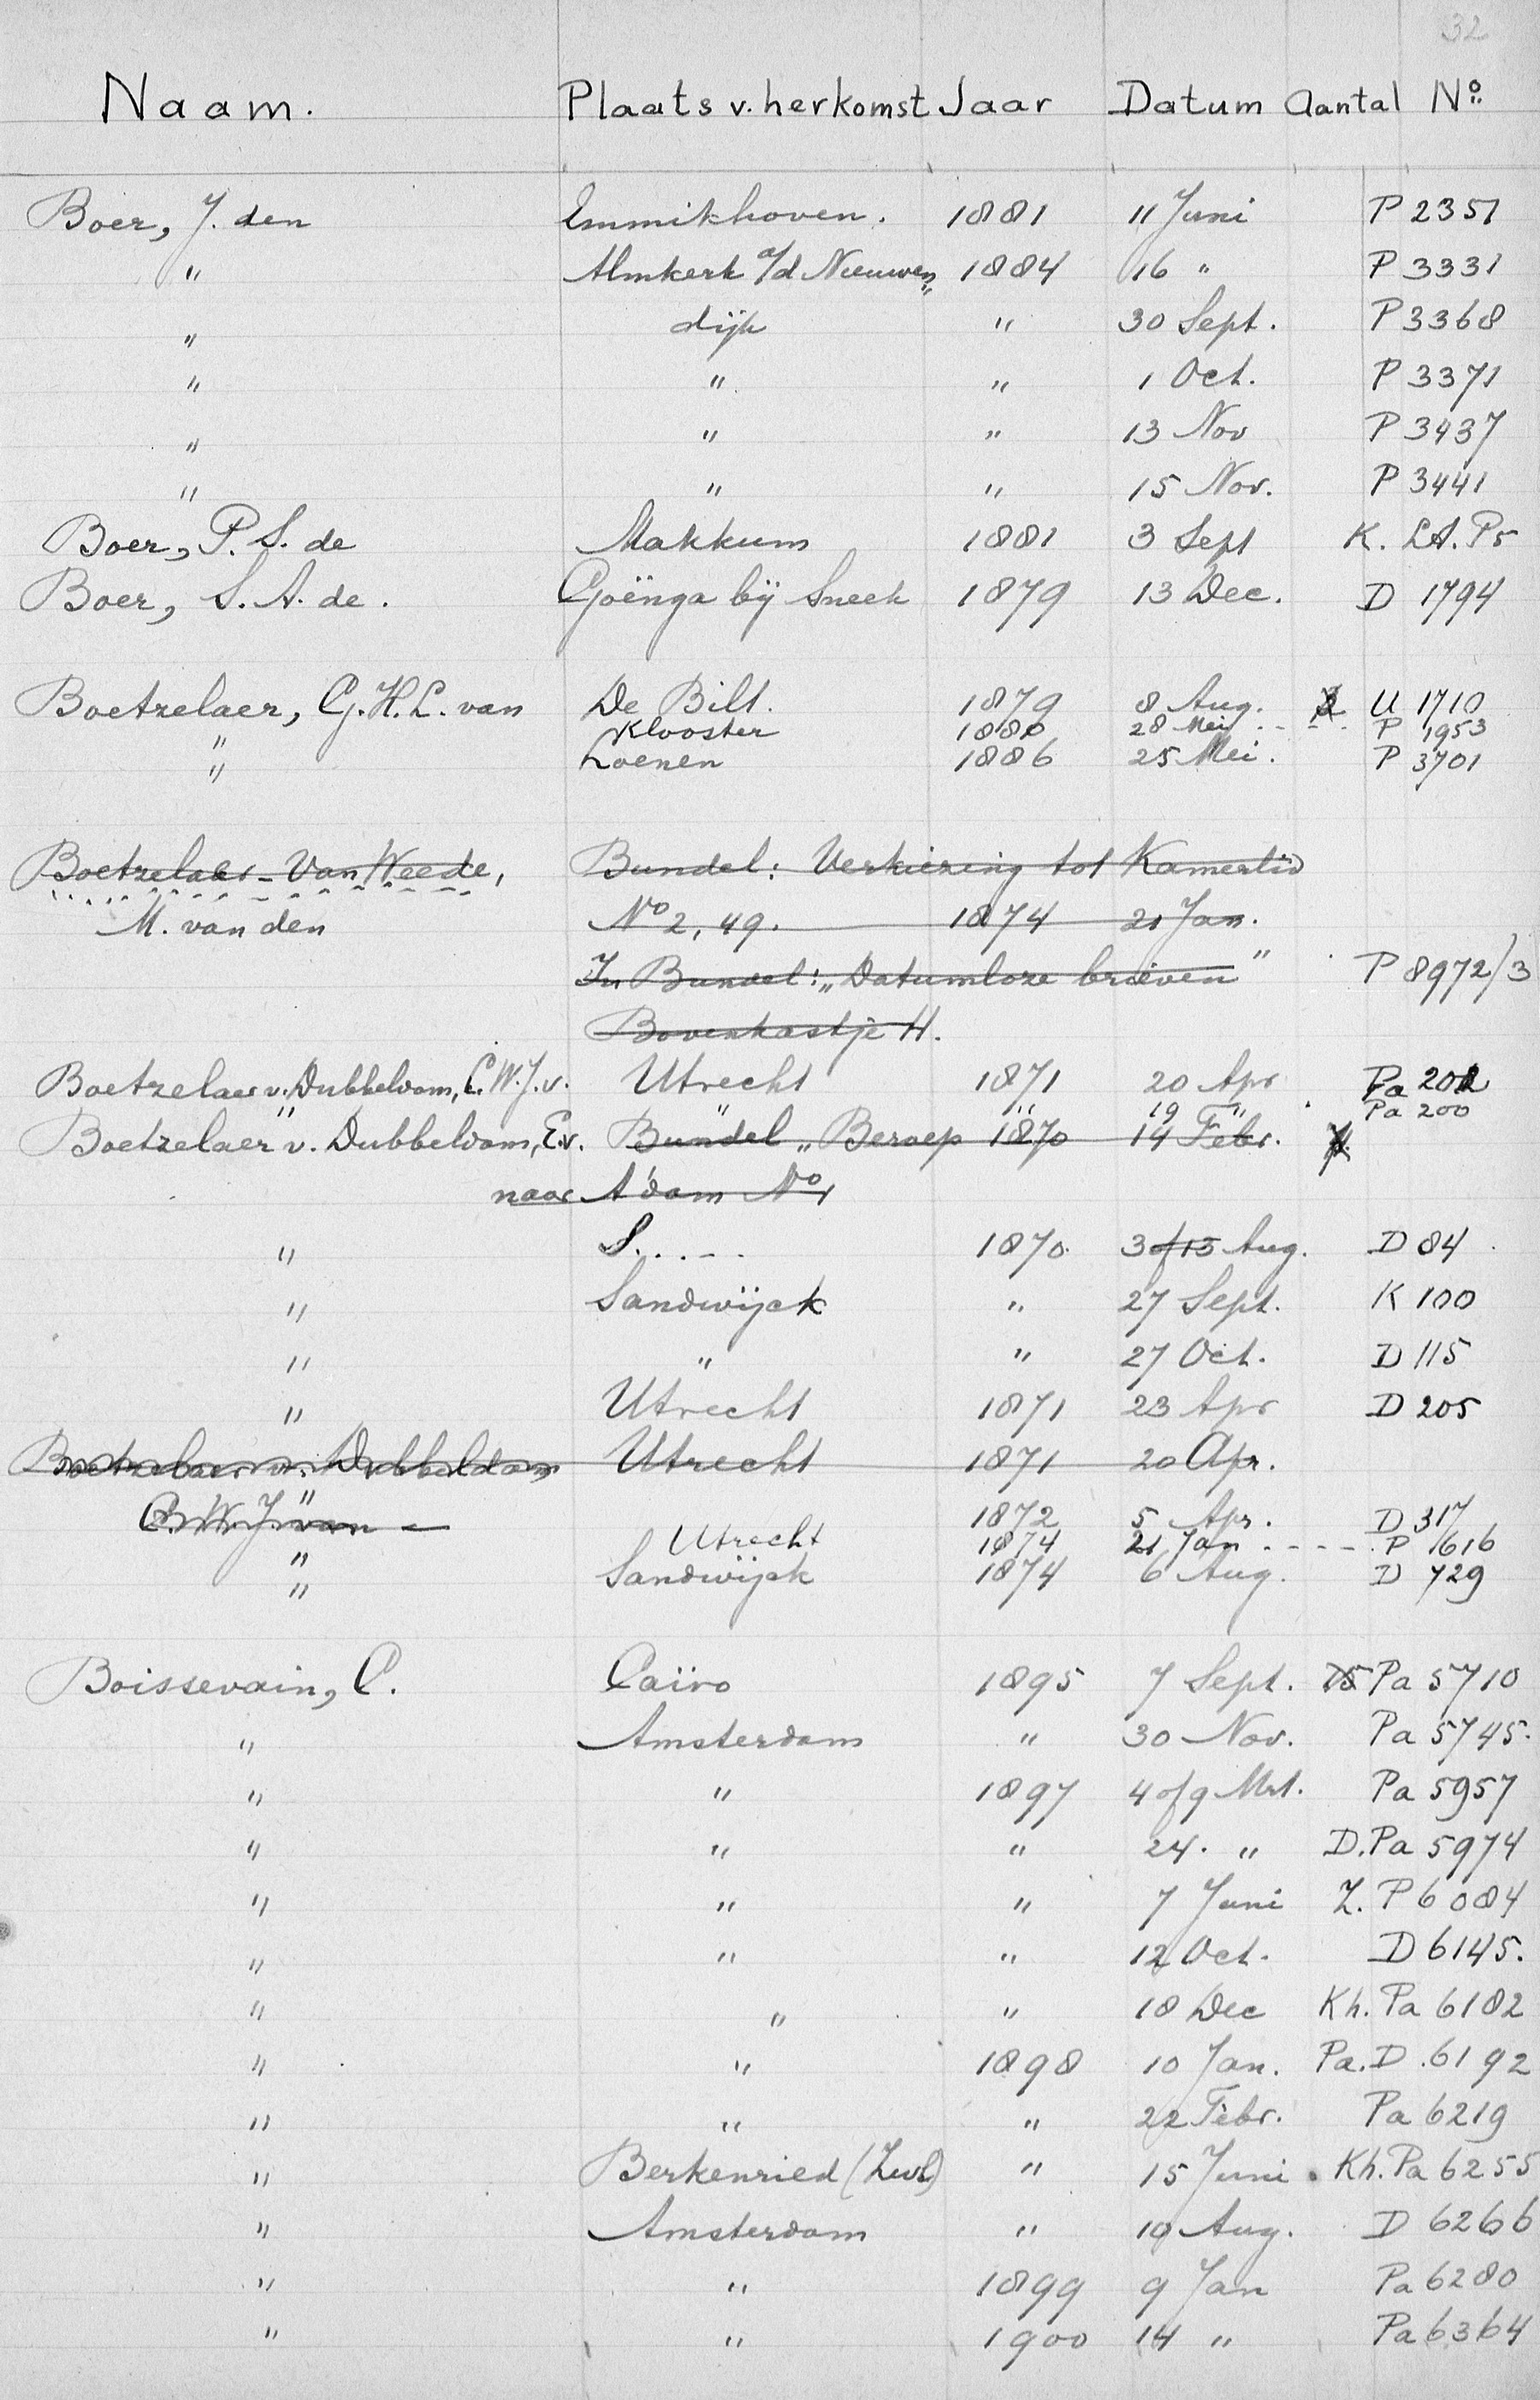 32
Naam. Plaats v. herkomst Jaar Datum Aantal No.
Boer, J. den Emmikhoven. 1881 11 Juni P 2351
" Almkerk a/d Nieuwen 1884 16 " P 3331
" dijk " 30 Sept. P 3368
" " " 1 Oct. P 3371
" " " 13 Nov P 3437
" " " 15 Nov. P 3441
Boer, P. S. de Makkum 1881 3 Sept K. LA. Ps
Boer, S. A. de. Goënga bij Sneek 1879 13 Dec. D 1794
Boetzelaer, G. H. L. van De Bilt. 1879 8 Aug. U 1710
" Klooster 1880 28 Mei - - - P 1953
" Loenen 1886 25 Mei. P 3701
Boetzelaer - Van Weede, Bundel: Verkiezing tot Kamerlid
M. van den No 2, 49. 1874 21 Jan.
In Bundel: „Datumloze brieven" P 8972/3
Bovenkastje H.
Boetzelaer v. Dubbeldam, C. W. J. v. Utrecht 1871 20 Apr Pa 202
" " " 19 F" Pa 200
Boetzelaer v. Dubbeldam, E. v. Bundel „Beroep 1870 14 Febr.
naar A'dam No 1
" S. . . - - 1870. 3 of 15 Aug. D 84
" Sandwijck " 27 Sept. K 100
" " " 27 Oct. D 115
" Utrecht 1871 23 Apr D 205
Boetzelaer v. Dubbeldam Utrecht 1871 20 Apr.
C. W. J. van -
" 1872 5 Apr. D 317
" Utrecht 1874 21 Jan - - - - P 1616
" Sandwijck 1874 6 Aug. D 729
Boissevain, C. Caïro 1895 7 Sept. Pa 5710
" Amsterdam " 30 Nov. Pa 5745.
" " 1897 4 of 9 Mrt. Pa 5957
" " " 24. " D. Pa 5974
" " " 7 Juni Z. P 6084
" " " 12 Oct. D 6145.
" " " 18 Dec Kh. Pa 6182
" " 1898 10 Jan. Pa. D. 6192
" " " 22 Febr. Pa 6219
" Berkenried (Zwl) " 15 Juni Kh. Pa 6255
" Amsterdam " 10 Aug. D 6266
" " 1899 9 Jan Pa 6280
" " 1900 14 " Pa 6364